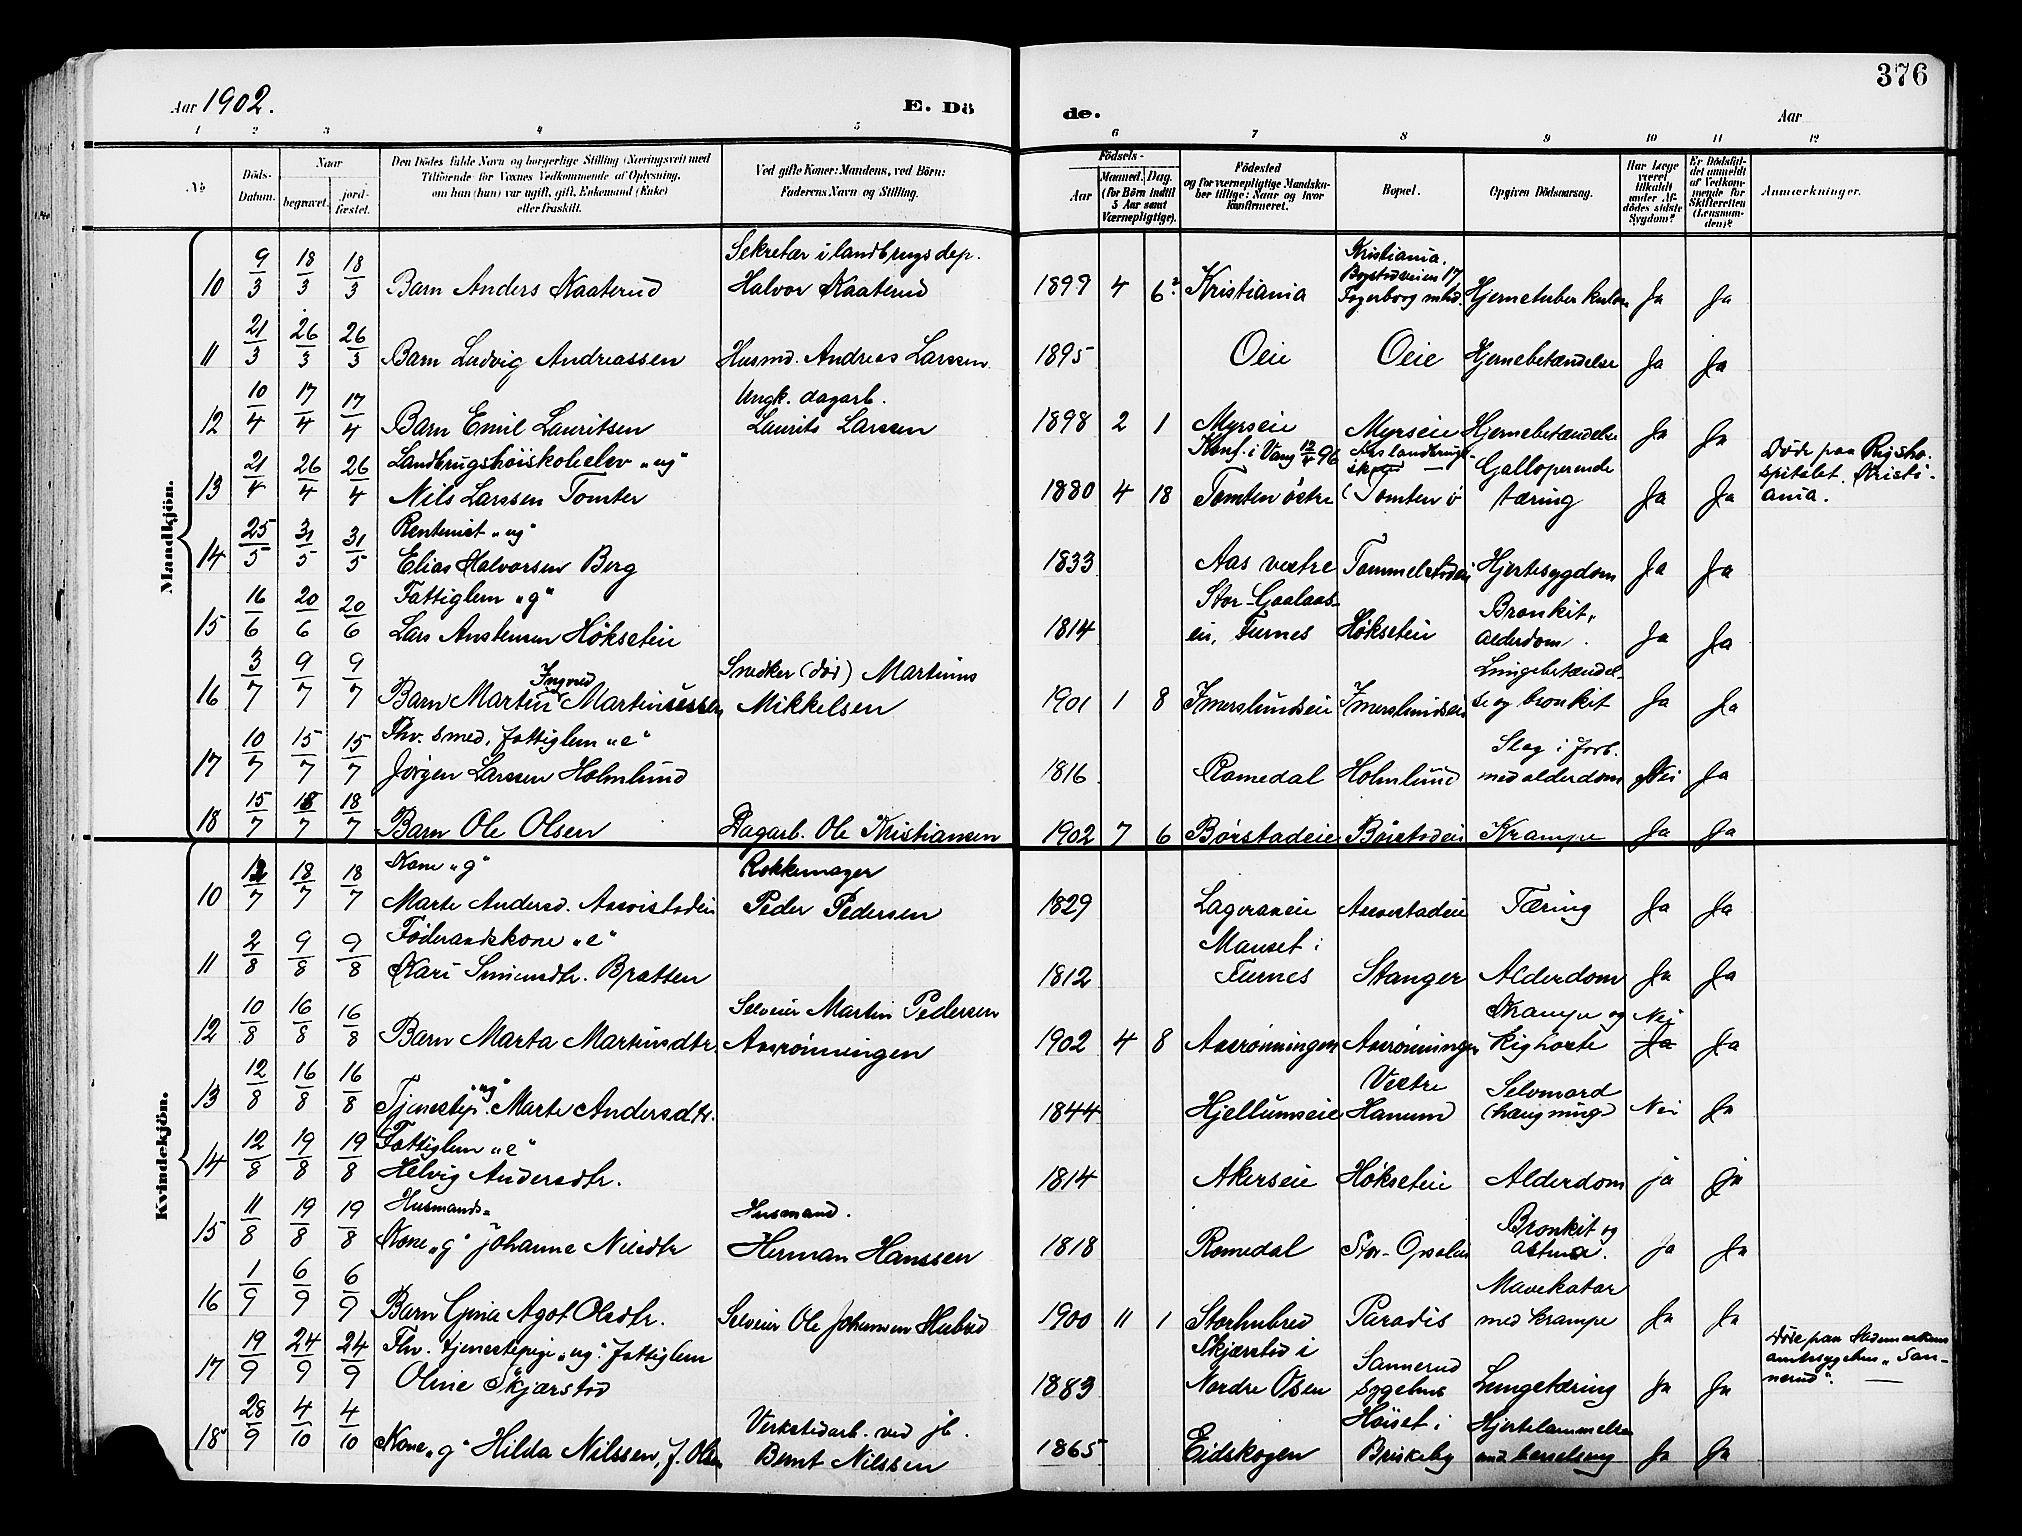 376
Aar 1902.
E. Dö
de.
Aar
1 2 3 4 5 6 7 8 9 10 11 12
No
Döds-Datum.
Naar
begravet.
jord-fæstet.
Den Dödes fulde Navn og borgerlige Stilling (Næringsvei) med
Tilföiende for Voxnes Vedkommende af Oplysning,
om han (hun) var ugift, gift, Enkemand (Enke)
eller fraskilt.
Ved gifte Koner: Mandens, ved Börn:
Faderens Navn og Stilling.
Födsels-
Aar
Maaned. Dag.
(for Börn indtil
5 Aar samt
Værnepligtige).
Födested
og for værnepligtige Mandska-
ber tillige: Naar og hvor
konfirmeret.
Bopæl.
Opgiven Dödsaarsag.
Har læge
været
tilkaldt
under Af-
dödes sidste
Sygdom?
Er Dödsfal-
det anmeldt
af Vedkom-
mende for
Skifteretten
(Lensman-
den)?
Anmærkninger.
Mandkjön.
Sekretær i landbrugsdep. Kristiania.
Bogstadveien 17
10 9/3 18/3 18/3 Barn Anders Kaaterud Halvor Kaaterud 1899 4 6 Kristiania Fagerborg mhd. Hjernetuberkulose Ja Ja
11 21/3 26/3 26/3 Barn Ludvig Andreassen Husmd. Andreas Larssen 1895 Oeie Oeie Hjernebetændelse Ja Ja
Ungk. dagarb.
12 10/4 17/4 17/4 Barn Emil Lauritsen Laurits Larssen 1898 2 1 Myrseie Myrseie Hjernebetændelse Ja Ja
Landbrugshöiskoleelev "ug" Konf. i Vang 12/4 96 Aas landbrugs- Galloperende Döde paa Rigsho-
13 21/4 26/4 26/4 Nils Larssen Tomter 1880 4 18 Tomten östre (Tomten ö tæring Ja Ja spitalet Kristi-
ania.
Rentenist "ug"
14 25/5 31/5 31/5 Elias Halvorsen Berg 1833 Aas vestre Tommelstadeie Hjertesygdom Ja Ja
Fattiglem "g" Stor-Gaalaas- Bronkit,
15 16/6 20/6 20/6 Lars Anstensen Hökseteie 1814 ei, Furnes Hökseteie alderdom. Ja Ja
Ingvad Snedker (död) Martinus Lungebetændel-
16 3/7 9/7 9/7 Barn Martin Martinussen Mikkelsen 1901 1 8 Imerslundseie Imerslundseie se og bronkit Ja Ja
Fhv. smed, fattiglem "e" Slag i forb.
17 10/7 15/7 15/7 Jörgen Larssen Holmlund 1816 Romedal Holmlund med alderdom Nei Ja
18 15/7 18/7 18/7 Barn Ole Olsen Dagarb. Ole Kristiansen 1902 7 6 Börstadeie Börstadeie Krampe Ja Ja
Kvindekjön.
Kone "g" Rokkemager
10 12/7 18/7 18/7 Marte Andersd. Aasvistadeie Peder Pedersen 1829 Lageraaeie Aasvestadeie Tæring Ja Ja
Föderaadskone "e" Mauset i
11 2/8 9/8 9/8 Kari Simensdtr. Bratten 1812 Furnes Stanger Alderdom Ja Ja
Selveier Martin Pedersen Krampe og Nei
12 10/8 16/8 16/8 Barn Marta Martinsdtr. Aasrönningen 1902 4 8 Aasrönningen Aasrönningen kighoste Ja Ja
"ug" Vestre Selvmord
13 12/8 16/8 16/8 Tjenestep. Marte Andersdtr. 1844 Hjellumseie Hanum (hængning) Nei Ja
Fattiglem "e"
14 12/8 19/8 19/8 Helvig Andersdtr. 1814 Akerseie Hökseteie Alderdom ja ja
Husmands- Husmand. Bronkit og
15 11/8 19/8 19/8 Kone "g" Johanne Nilsdtr Herman Hanssen 1818 Romedal Stor-Opsaleie astma. Ja Ja
Mavekatar
16 1/9 6/9 6/9 Barn Gina Agot Olsdtr. Selveier Ole Johannsen Hubred 1900 11 1 Storhubred Paradis med krampe Ja Ja
Fhv. tjenestepige "ug". fattiglem Skjærstod i Sannerud Döde paa Hedemarkens
17 19/9 24/9 24/9 Oline Skjærstod 1883 Nordre Osen sygehus Lungetæring Ja Ja amtssygehus "San-
nerud".
Verkstedarb. ved jb. Höiset i Hjertelammelse
18 28/9 4/10 4/10 Kone "g" Hilda Nilssen, f. Olsen Bernt Nilssen 1865 Eidskogen Briskeby med barselseng Ja Ja